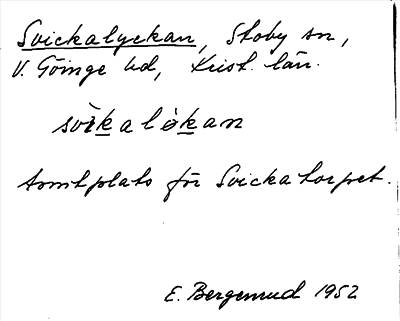 Svickalyckan, Stoby sn,
V. Göinge hd, Krist. län.
svìkalókan
tomtplats för Svickatorpet.
E. Bergemud 1952